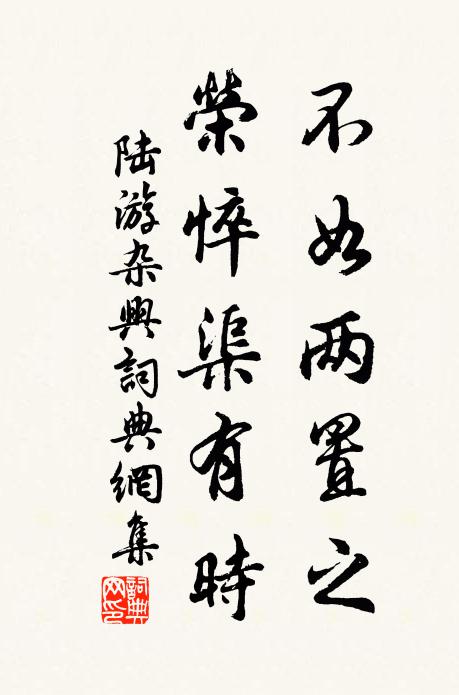 不如两置之
榮悴渠有時
陆游杂興詞典網集
詞典网印